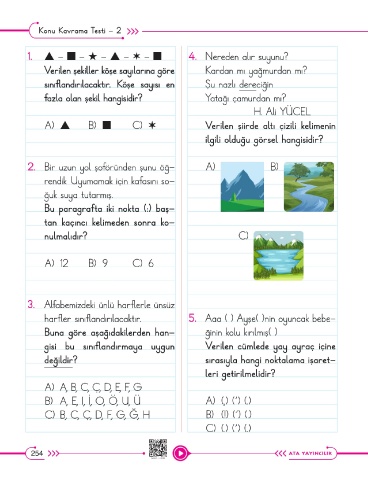 Konu Kavrama Testi – 2
1. ▲ – ■ – ★ – ▲ – ✶ – ■
Verilen şekiller köşe sayılarına göre
sınıflandırılacaktır. Köşe sayısı en
fazla olan şekil hangisidir?
A) ▲ B) ■ C) ✶
2. Bir uzun yol şoföründen şunu öğ-
rendik Uyumamak için kafasını so-
ğuk suya tutarmış.
Bu paragrafta iki nokta (:) baş-
tan kaçıncı kelimeden sonra ko-
nulmalıdır?
A) 12 B) 9 C) 6
3. Alfabemizdeki ünlü harflerle ünsüz
harfler sınıflandırılacaktır.
Buna göre aşağıdakilerden han-
gisi bu sınıflandırmaya uygun
değildir?
A) A, B, C, Ç, D, E, F, G
B) A, E, I, İ, O, Ö, U, Ü
C) B, C, Ç, D, F, G, Ğ, H
4. Nereden alır suyunu?
Kardan mı yağmurdan mı?
Şu nazlı dereciğin
Yatağı çamurdan mı?
H. Ali YÜCEL
Verilen şiirde altı çizili kelimenin
ilgili olduğu görsel hangisidir?
A) B)
C)
5. Aaa ( ) Ayşe( )nin oyuncak bebe-
ğinin kolu kırılmış( )
Verilen cümlede yay ayraç içine
sırasıyla hangi noktalama işaret-
leri getirilmelidir?
A) (,) (') (.)
B) (!) (') (.)
C) (.) (') (.)
254
ATA YAYINCILIK